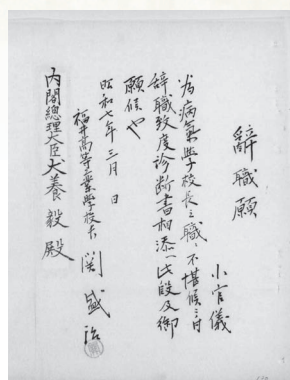 辭職願
小官儀
為病氣學校長之職ニ不堪候ニ付
辞職致度診断書相添ヘ此段及御
願候也
昭和七年三月 日
福井高等工業學校長 関盛治
内閣總理大臣犬養毅殿